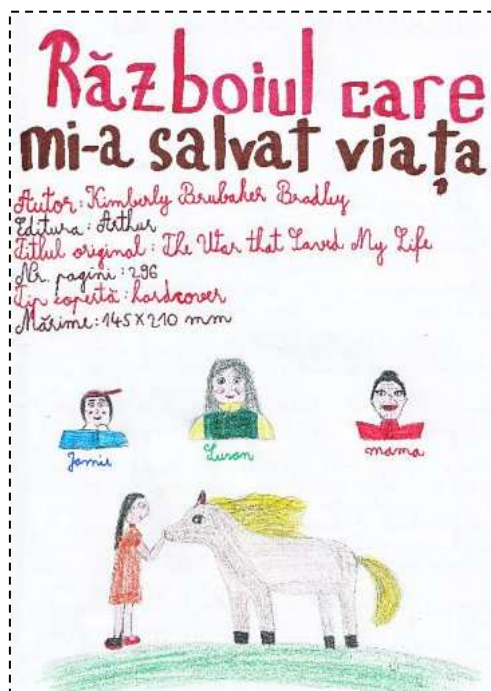 Războiul care
mi-a salvat viața
Autor: Kimberly Brubaker Bradley
Editura: Arthur
Titlul original: The War that Saved My Life
Nr. pagini: 296
Tip copertă: hardcover
Mărime: 145 X 210 mm
Jamie
Susan
mama